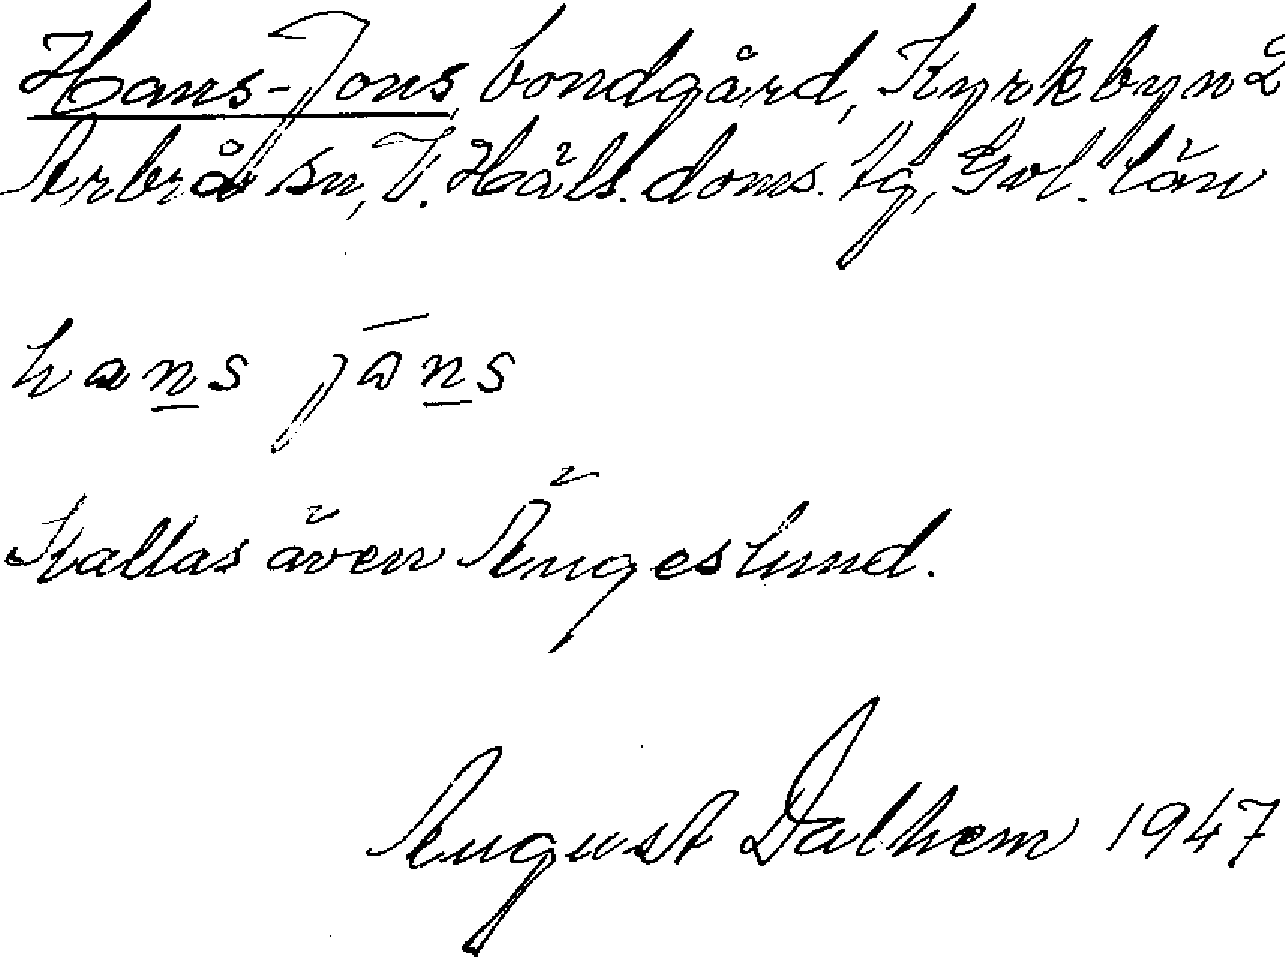 Hans-Jons, bondgård, Kyrkbyn 2
Arbrå sn, V. Häls. doms. tg, Gvl. län
hans jōns
Kallas även Ängeslund.
August Dalhem 1947